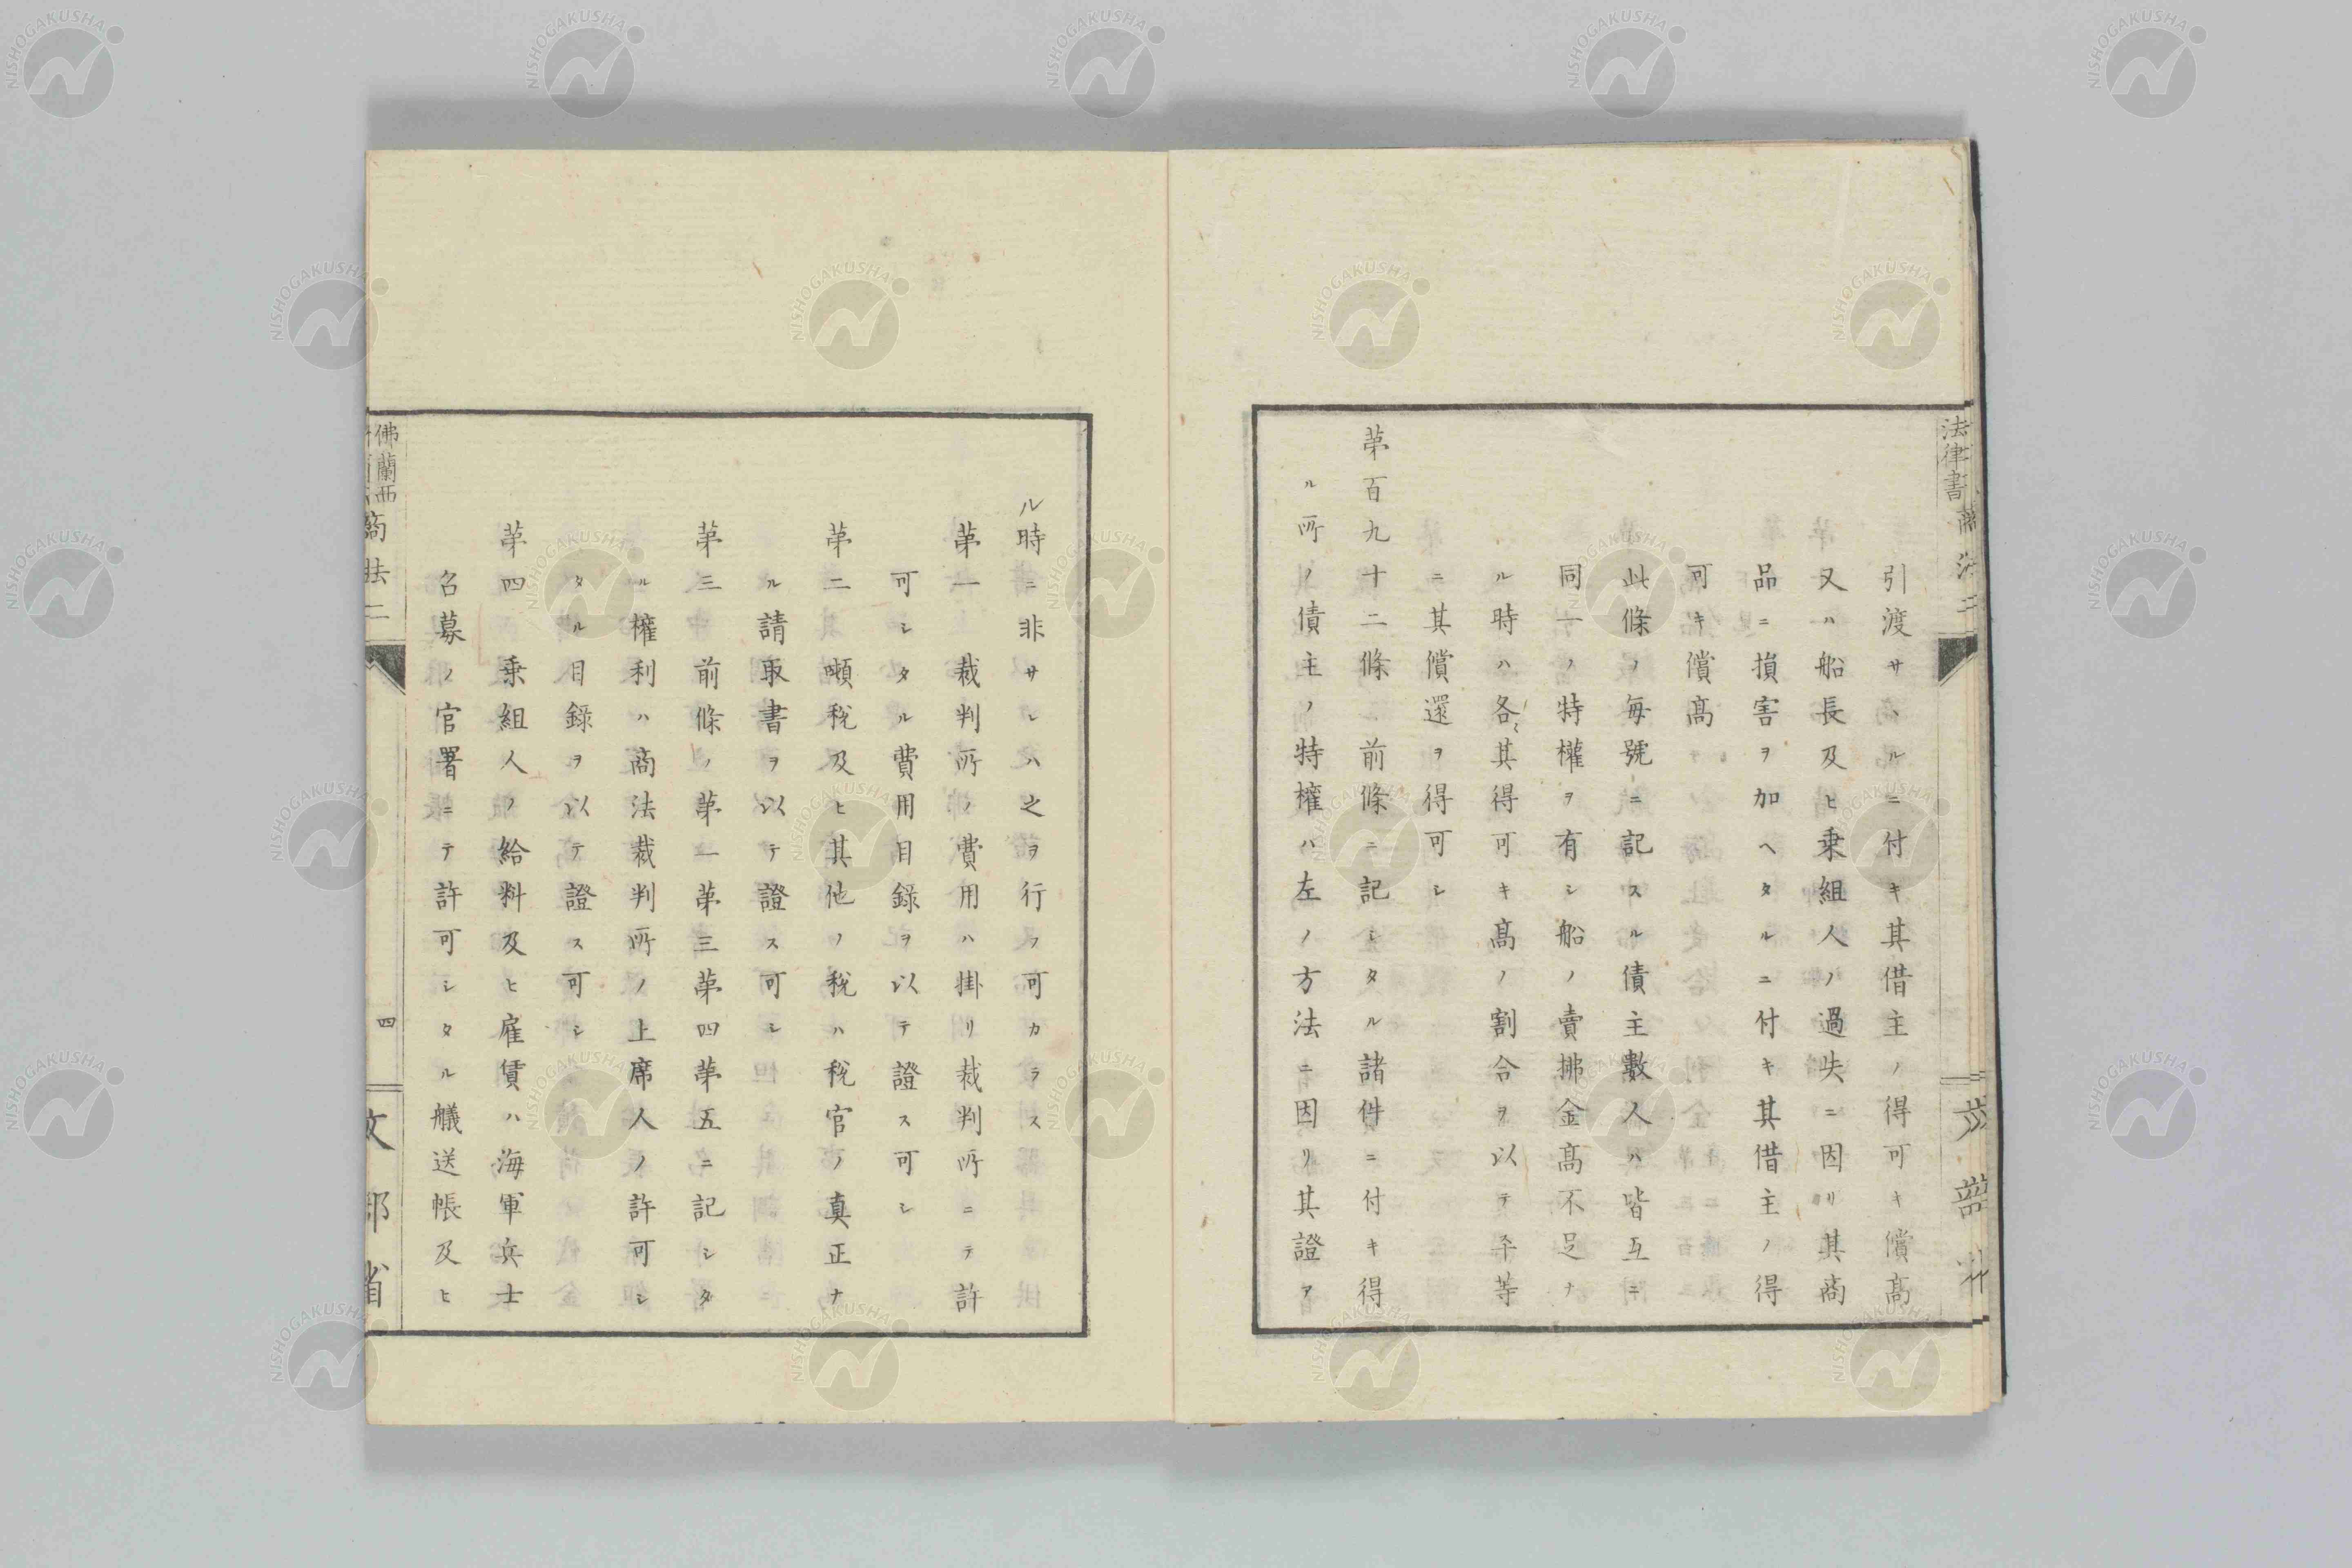 法律書 商法二
引渡サヽルニ付キ其借主ノ得可キ償髙
又ハ船長及ヒ乗組人ノ過失ニ因リ其商
品ニ損害ヲ加ヘタルニ付キ其借主ノ得
可キ償髙
此條ノ毎號ニ記スル債主數人ハ皆互ニ
同一ノ特權ヲ有シ船ノ賣拂金髙不足ナ
ル時ハ各〻其得可キ髙ノ割合ヲ以テ平等
ニ其償還ヲ得可シ
第百九十二條 前條ニ記シタル諸件ニ付キ得
ル所ノ債主ノ特權ハ左ノ方法ニ因リ其證ア
ル時ニ非サレハ之ヲ行フ可カラス
第一 裁判所ノ費用ハ掛リ裁判所ニテ許
可シタル費用目録ヲ以テ證ス可シ
第二 噸税及ヒ其他ノ税ハ税官ノ真正ナ
ル請取書ヲ以テ證ス可シ
第三 前條ノ第一第三第四第五ニ記シタ
ル權利ハ商法裁判所ノ上席人ノ許可シ
タル目録ヲ以テ證ス可シ
第四 乗組人ノ給料及ヒ雇賃ハ海軍兵士
召募ノ官署ニテ許可シタル艤送帳及ヒ
佛蘭西 商法二
四
文部省
NISHOGAKUSHA